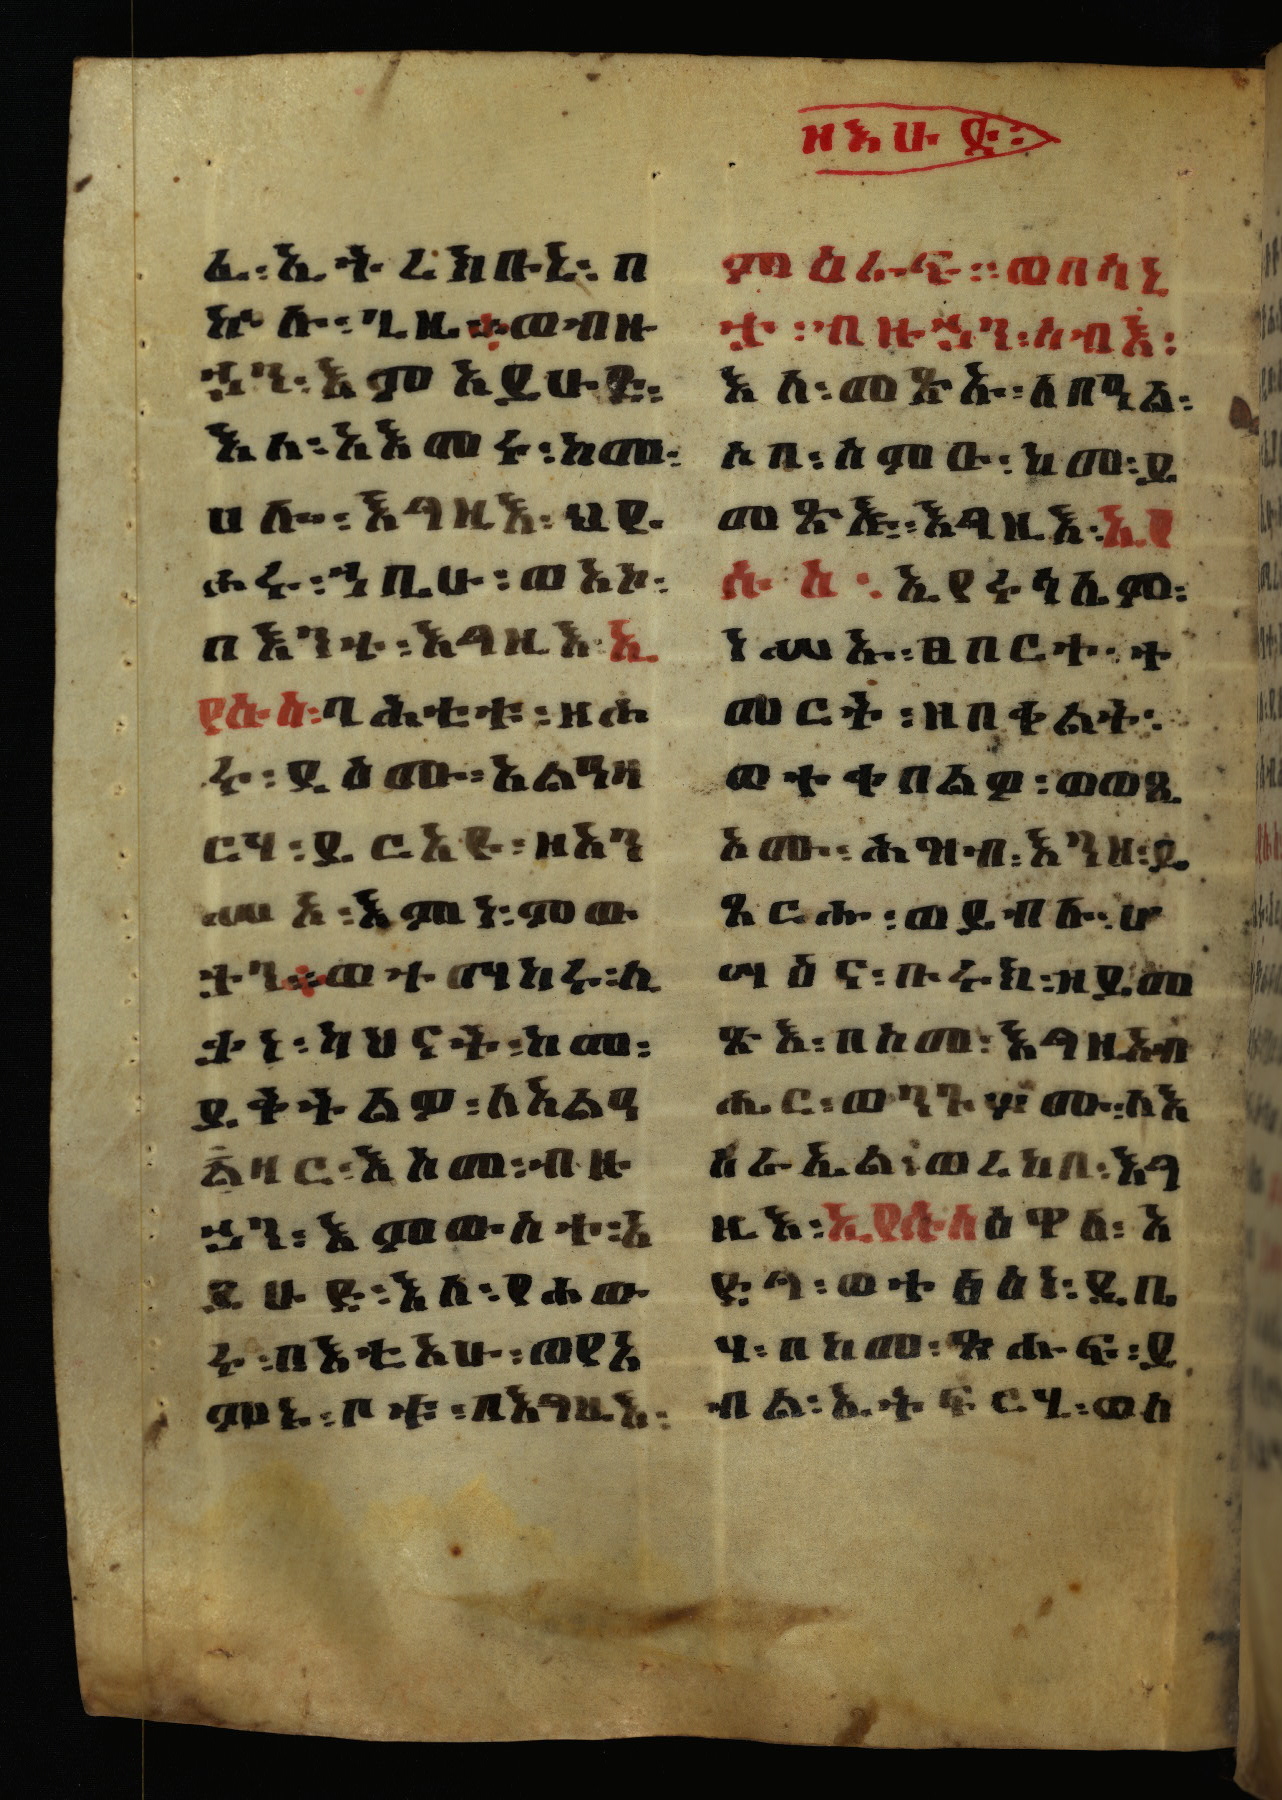 ዘእሁድ፡
ፌ፡ኢትረክቡኒ፡በ
ኵሉ፡ጊዜ።ወብዙ
ኃን፡እምአይሁድ፡
እለ፡አእመሩ፡ከመ፡
ሀሎ፡እግዚእ፡ህየ
ሖሩ፡ኀቤሁ፡ወአኮ፡
በእንተ፡እግዚእ፡ኢ
የሱስ፡ባሕቲቱ፡ዘሖ
ሩ፡ዳዕሙ፡አልዓዛ
ርሃ፡ይርአዩ፡ዘአን
ሥአ፡እምነ፡ምው
ታን።ወተማከሩ፡ሊ
ቃነ፡ካህናት፡ከመ፡
ይቅትልዎ፡ለአልዓ
ልዛር፡እስመ፡ብዙ
ኃን፡እምውስተ፡አ
ይሁድ፡እለ፡የሐው
ሩ፡በእቲአሁ፡ወየአ
ምኑ፡ቦቱ፡በእግዚእ፡
ምዕራፍ፡፡ወበሳኒ
ታ፡ብዙኃን፡ሰብእ፡
እለ፡መጽኡ፡ለበዓል፡
ሶበ፡ሰምዑ፡ከመ፡ይ
መጽእ፡እግዚእ፡ኢየ
ሱስ፡ኢየሩሳሌም፡
ነሥኡ፡ፀበርተ፡ተ
መርት፡ዘበቀልት፡
ወተቀበልዎ፡ወወፂ
አሙ፡ሕዝብ፡እንዘ፡ይ
ጸርሑ፡ወይብሉ፡ሆ
ሣዕና፡ቡሩክ፡ዘይመ
ጽእ፡በስመ፡እግዚአብ
ሔር፡ወንጉሦሙ፡ለእ
ስራኤል፡ወረከበ፡እግ
ዚእ፡ኢየሱስዕዋለ፡አ
ድግ፡ወተፅዕነ፡ዲቤ
ሃ፡በከመ፡ጽሑፍ፡ይ
ብል፡ኢትፍርሂ፡ወለ